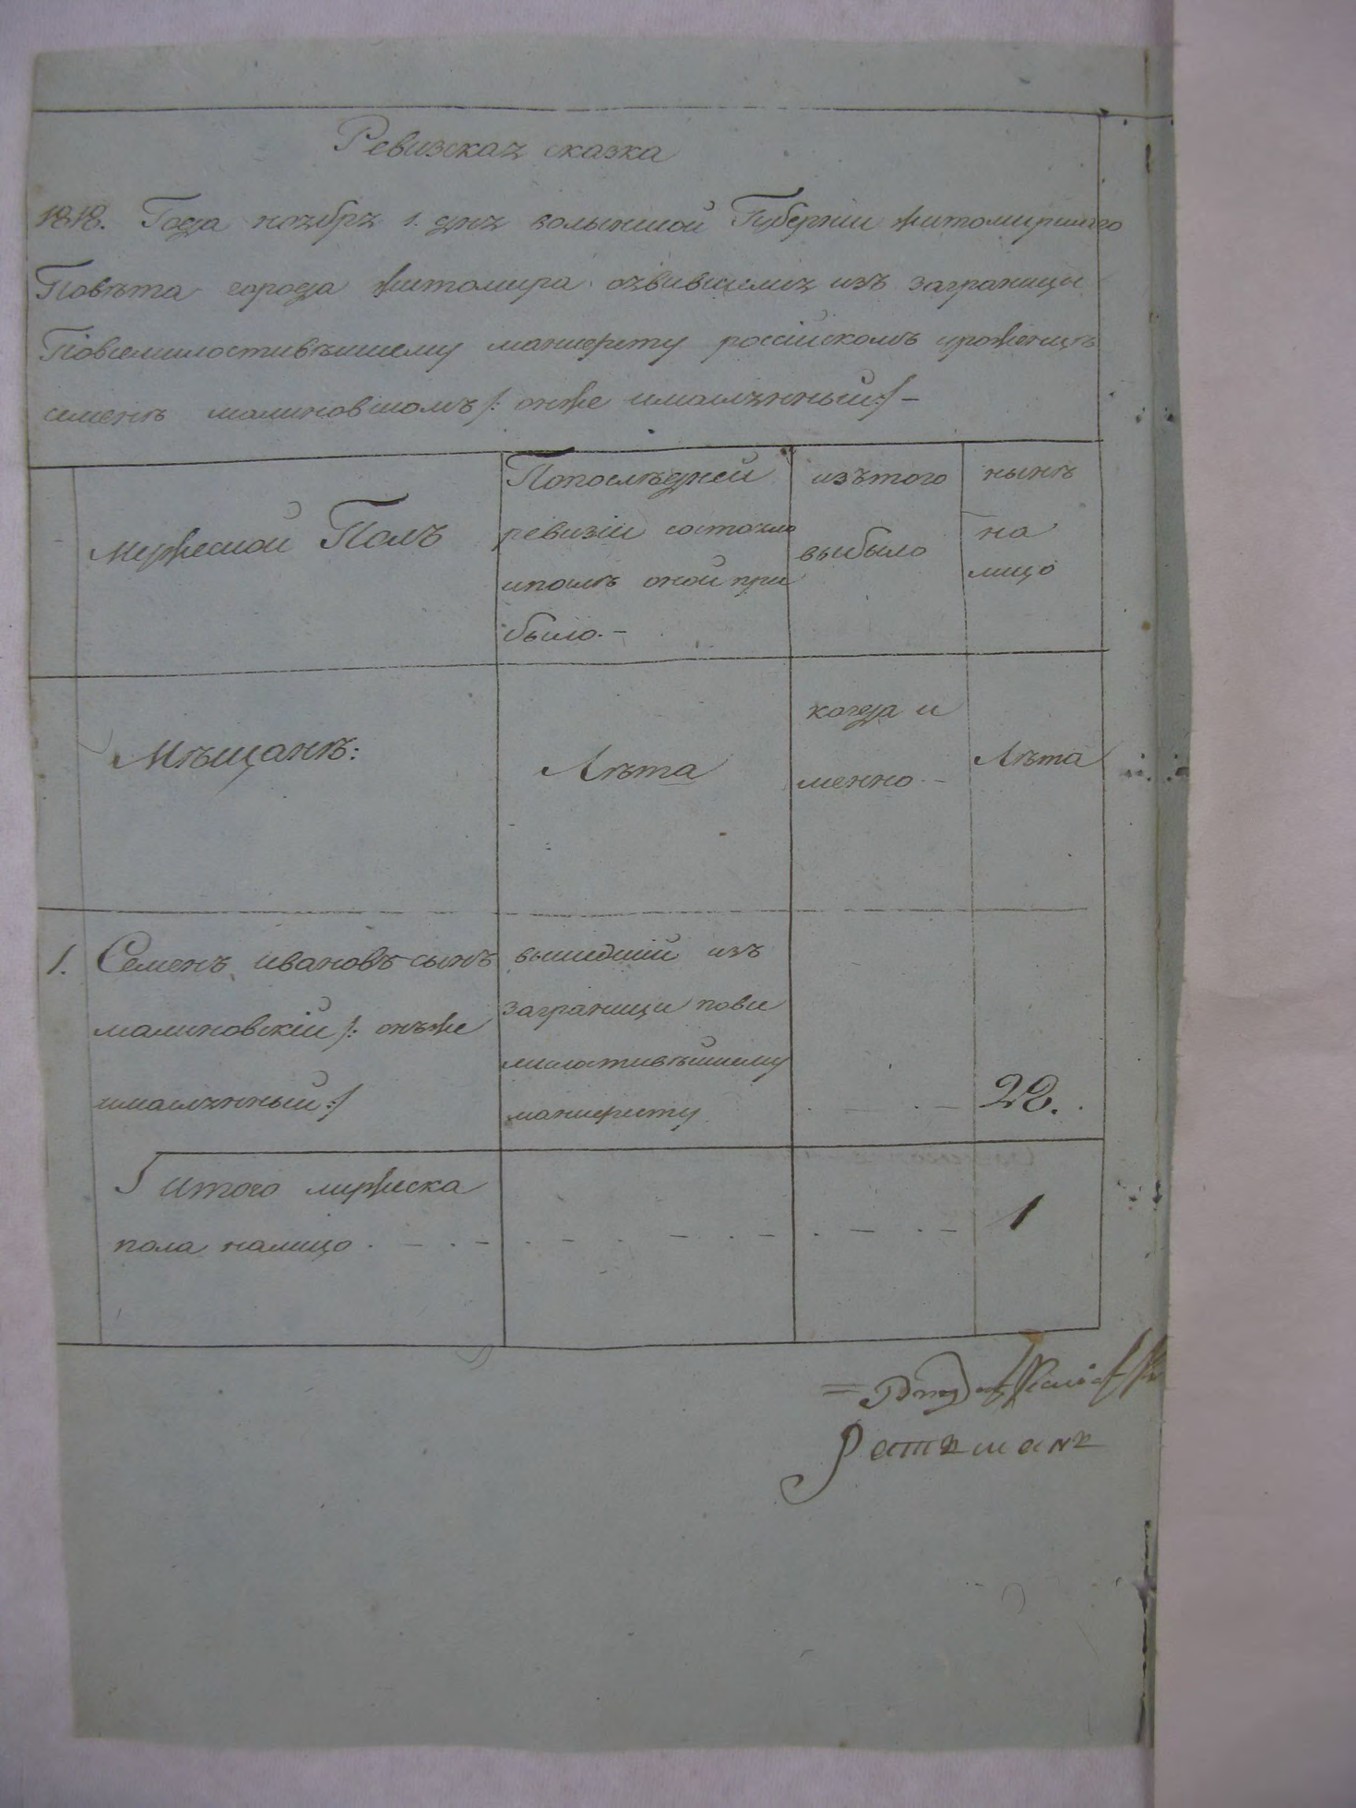 Ревизская сказка
1818. Года ноября 1. дня волынской Губернии житомирского
Повѣта города житомира. оявившемся изъ заграницы
Повсемилостивѣйшему манифесту россійскомъ уроженцѣ
семенѣ малиновскомъ /: онже
мужеской Полъ
Попослѣдней
ревизіи состояло
ипослѣ оной при
было. –
изътого
выбыло
нынѣ
на
лицо
Мѣщанѣ:
Лѣта
когда и
менно. –
Лѣта
1. Семенъ ивановъ сынъ
малиновскій /: онъже
вышедший изъ
заграници повсе
милостивѣйшему
манифесту
28.
Итого мужеска
пола налицо
1
Ратманъ